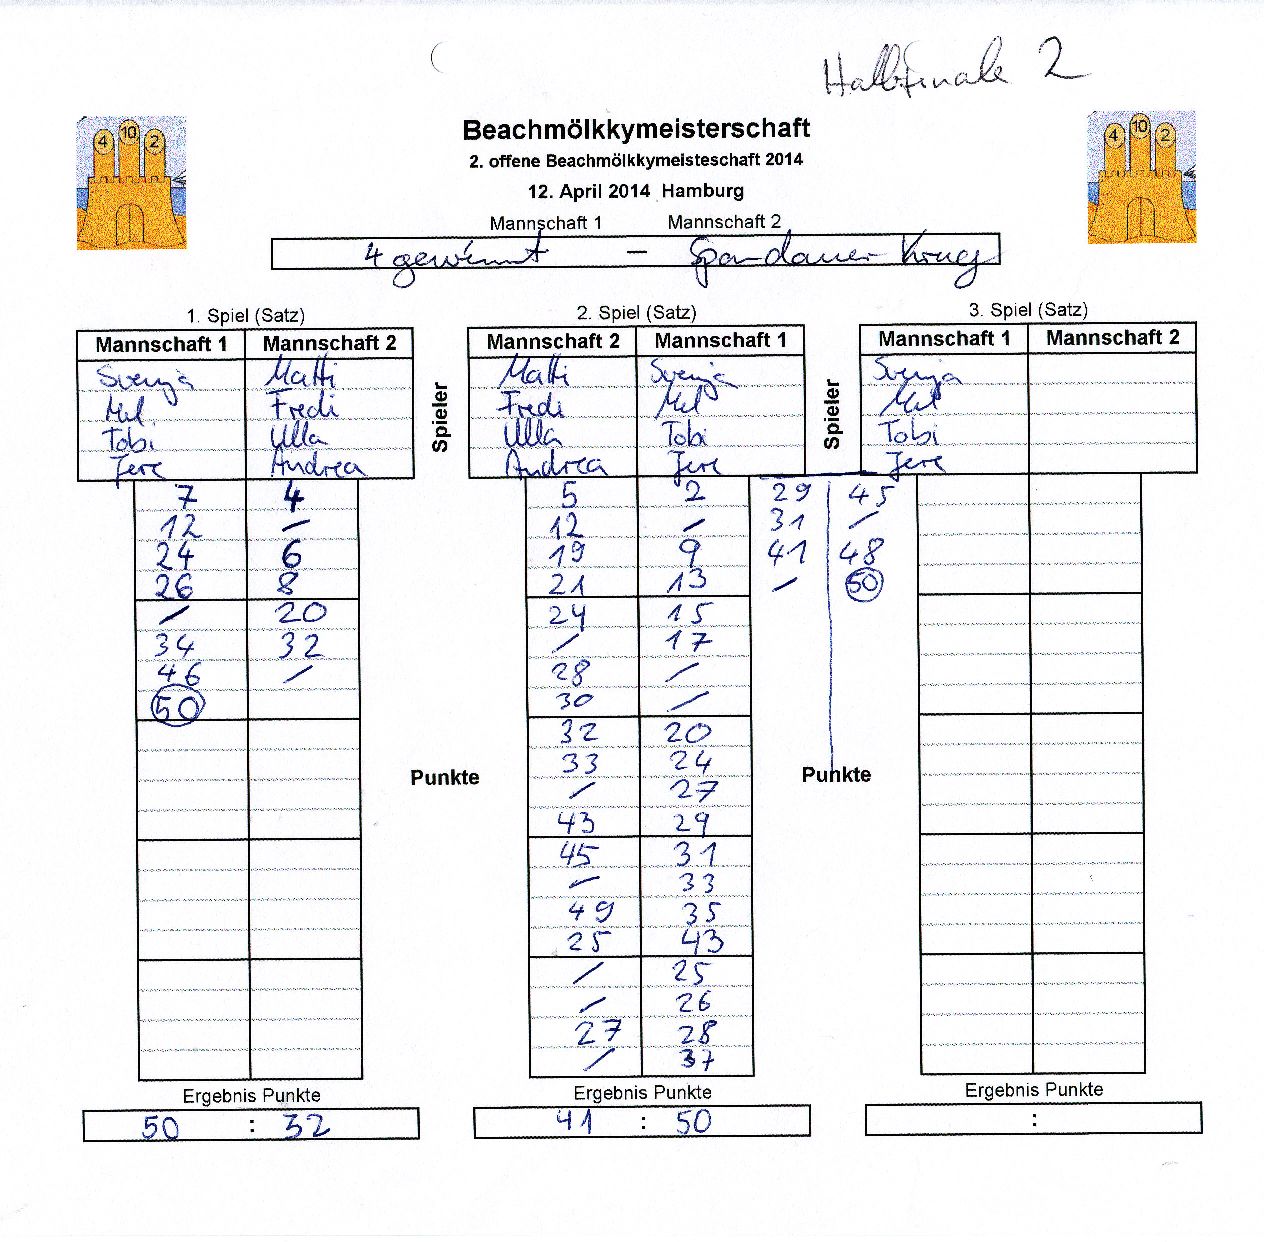 Halbfinale 2
4 10 2
4 10 2
Beachmölkkymeisterschaft
2. offene Beachmölkkymeisteschaft 2014
12. April 2014 Hamburg
Mannschaft 1 Mannschaft 2
4 gewinnt – Spandauer Krug
1. Spiel (Satz) 2. Spiel (Satz) 3. Spiel (Satz)
Mannschaft 1 Mannschaft 2 Mannschaft 2 Mannschaft 1 Mannschaft 1 Mannschaft 2
Svenja Matti Matti Svenja Svenja
Mel Fredi Fredi Mel Mel
Tobi Ulla Ulla Tobi Tobi
Jere Andrea Andrea Jere Jere
Spieler Spieler
7 4 5 2 29 45
12 – 12 – 31 /
24 6 19 9 41 48
26 8 21 13 / 50
/ 20 24 15
34 32 / 17
46 / 28 /
50 30 /
32 20
33 24
Punkte Punkte
/ 27
43 29
45 31
– 33
49 35
25 43
/ 25
/ 26
27 28
/ 37
Ergebnis Punkte Ergebnis Punkte Ergebnis Punkte
50 : 32 41 : 50 :